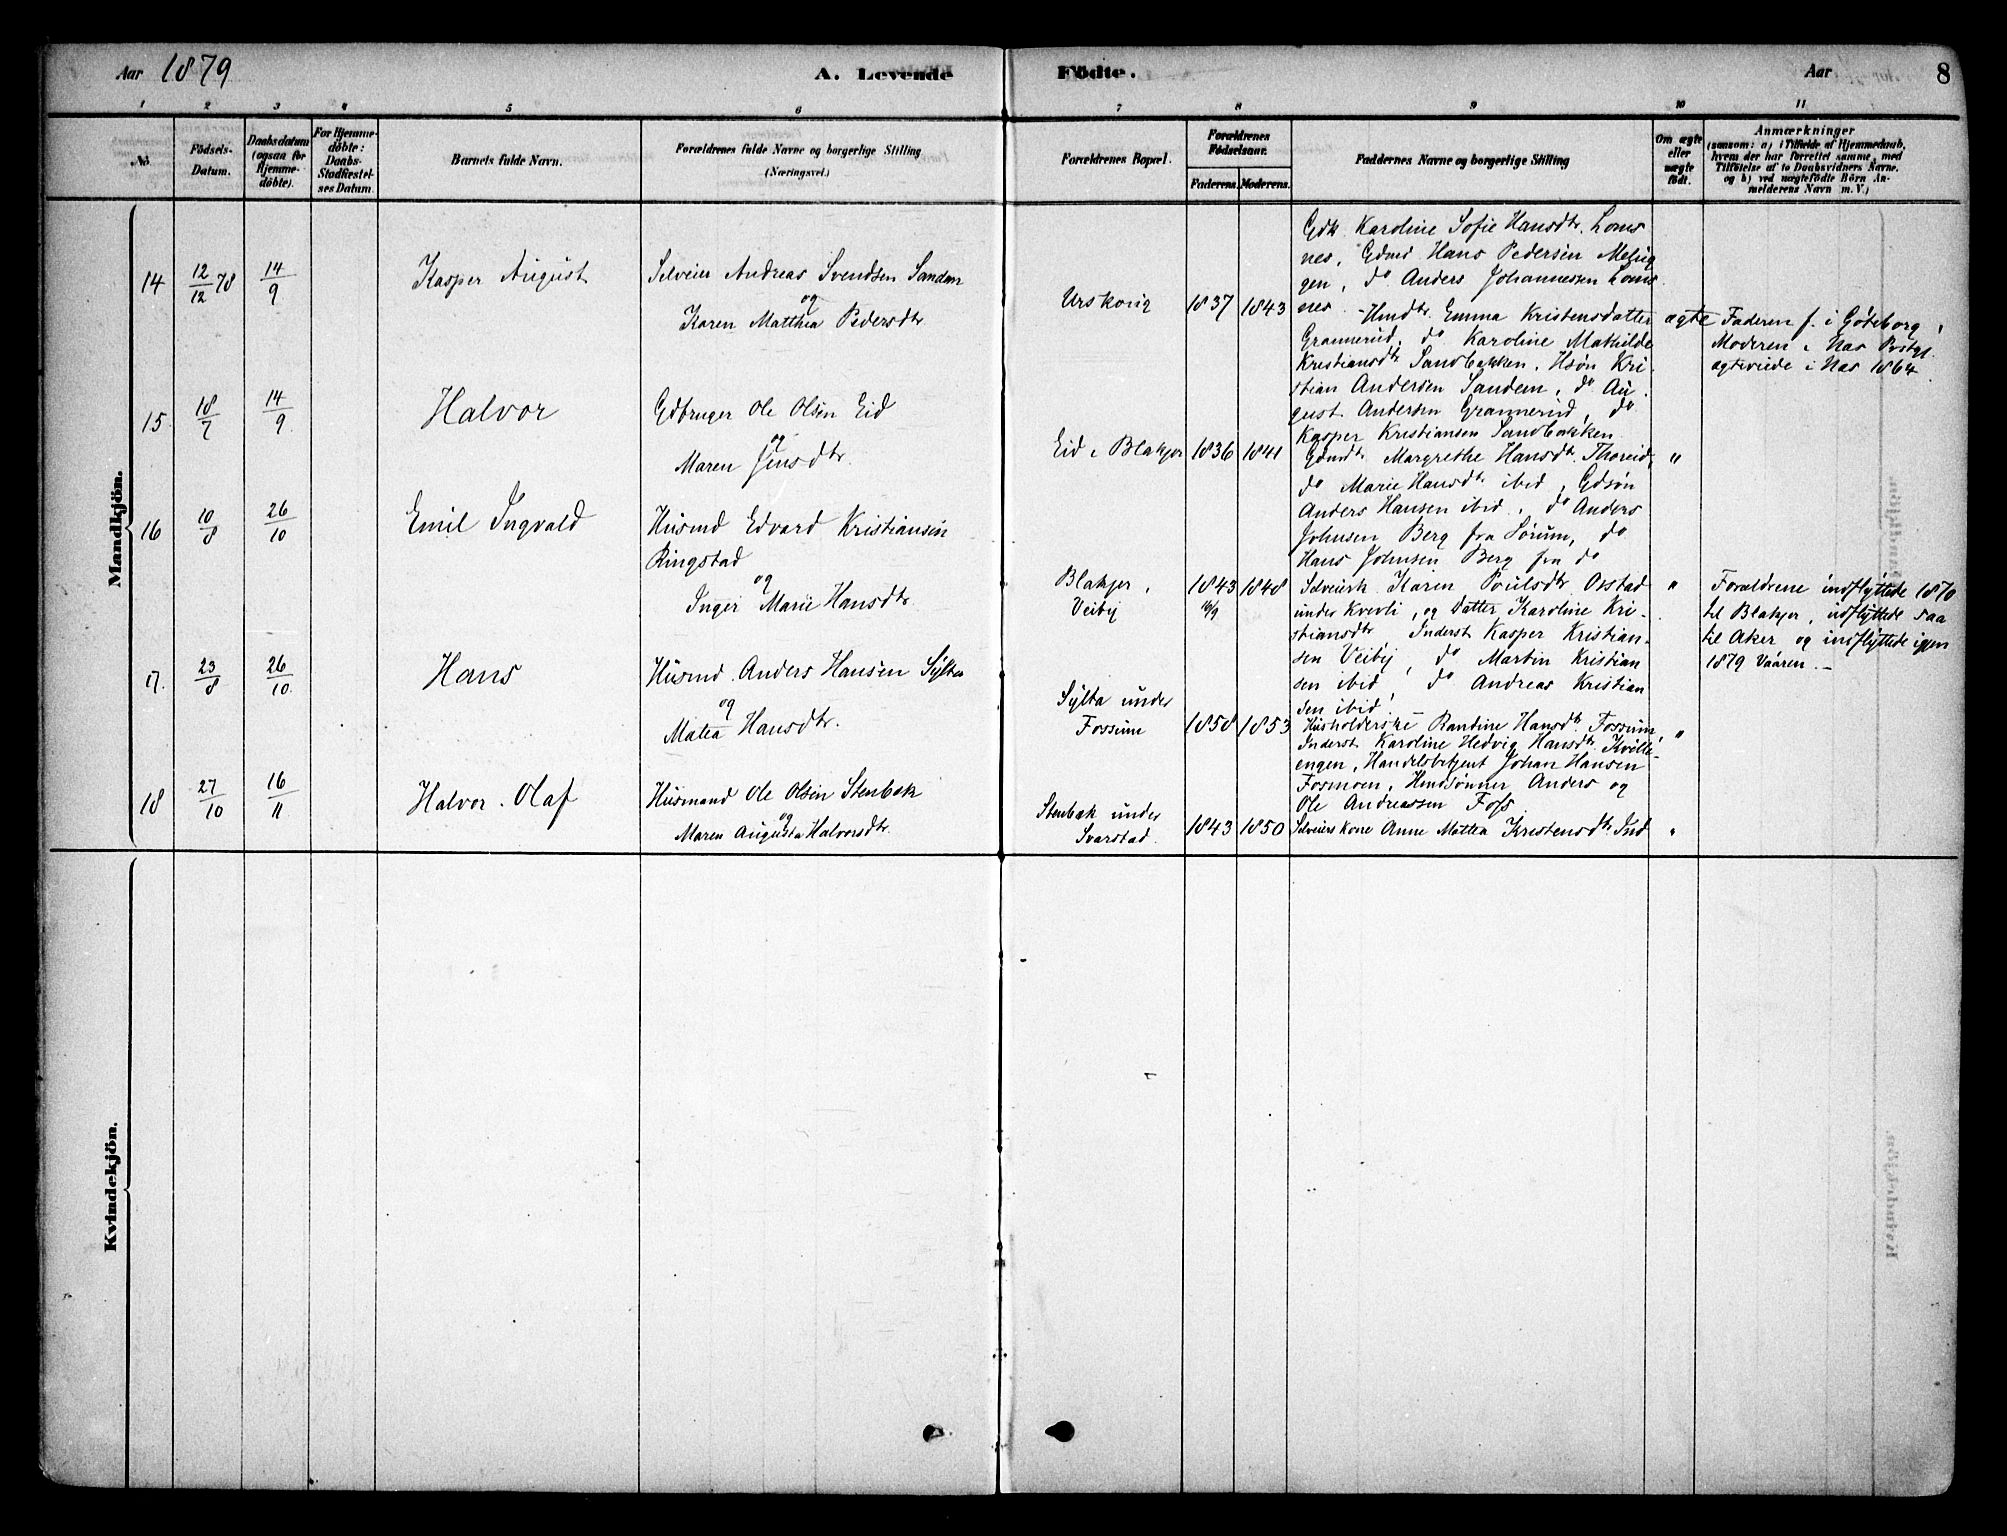 Aar 1879
A. Levende Födte.
Aar 8
1 2 3 4 5 6 7 8 9 10 11
No.
Födsels-
Datum.
Daabsdatum
(ogsaa for
Hjemme-
döbte).
For Hjemme-
döbte:
Daabs-
Stadfæstel-
ses Datum.
Barnets fulde Navn.
Forældrenes fulde Navne og borgerlige Stilling
(Næringsvei.)
Forældrenes Bopæl.
Forældrenes
Födselsaar.
Faderens. Moderens.
Faddernes Navne og borgerlige Stilling
Om ægte
eller
uægte
födt.
Anmærkninger
(saasom: a) i Tilfælde af Hjemmedaab,
hvem der har forrettet samme, med
Tilföielse af to Daabsvidners Navne.
og b) ved uægtefödte Börn An-
melderens Navn m. V.)
Mandkjön.
14 12/12 78 14/9 Kasper August
Selveier Andreas Svendsen Sandem
og
Karen Matthea Pedersdtr
Urskoug 1837 1843
Gdk. Karoline Sofie Hansdtr. Loms
nes, Gdmd Hans Pedersen
gen, do Anders Johannessen Loms
nes. - Hmdtr. Emma Kristensdatter
Grannerud, do Karoline Mathilde
Kristiansdtr Sandbakken. Hsøn Kri-
stian Andersen Sandem, do Au-
gust Andersen Grannerud, do
Kasper Kristiansen Sandbakken
ægte
Faderen f. i Göteborg,
Moderen i Nas Prstgj.
ægteviede i Nas 1864
15 18/7 14/9 Halvor
Gdbruger Ole Olsen Eid
og
Maren Jensdtr.
Eid i Blakjer 1836 1841
Gdmdtr. Margrethe Hansdtr. Thoreid,
do Marie Hansdtr ibid, Gdsøn
Anders Hansen ibid, do Anders
Johnsen Berg fra Sørum, do
Hans Johnsen Berg fra do
"
16 10/8 26/10 Emil Ingvald
Husmd Edvard Kristiansen
Ringstad
og
Inger Marie Hansdtr
Blakjer,
Veiby
1843 1848
Selveierk. Karen Poulsdtr Osstad
under Kverli, og Datter Karoline Kri-
stiansdtr, Inderst Kasper Kristian-
sen Veiby, do Martin Kristian
sen ibid, do Andreas Kristian
sen ibid
"
Forældrene indflyttede 1870
til Blakjer, udflyttede saa
til Aker og indflyttede igjen
1879 Vaaren. -
17. 23/8 26/10 Hans
Husmd. Anders Hansen Sylta
og
Matea Hansdtr.
Sylta under
Fossum
1850 1853
Husholderske Randine Hansdtr. Fossum,
Inderst Karoline Hedvig Hansdtr.
engen, Handelsbetjent Johan Hansen
Fosmoen, Hmdsønner Anders og
Ole Andreassen Foss.
"
18 27/10 16/11 Halvor Olaf
Husmand Ole Olsen Stenbak
og
Maren Augusta Halvorsdtr.
Stenbak under
Svarstad.
1843 1850
Selveiers kone Anne Mattea Kristensdtr. Ind
"
Kvindekjön.